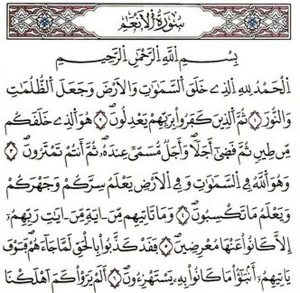 سورة الأنعام
بسم الله الرحمن الرحيم
الحمد لله الذي خلق السموات والأرض وجعل الظلمات
والنور ۝ ثم الذين كفروا بربهم يعدلون ۝ هو الذي خلقكم
من طين ثم قضى أجلا وأجل مسمى عنده ثم أنتم تمترون ۝
وهو الله في السموات وفي الأرض يعلم سركم وجهركم
ويعلم ما تكسبون ۝ وما تأتيهم من ءاية من ءايت ربهم
إلا كانوا عنها معرضين ۝ فقد كذبوا بالحق لما جاءهم فسوف
يأتيهم أنبؤا ما كانوا به يستهزءون ۝ ألم يروا كم أهلكنا